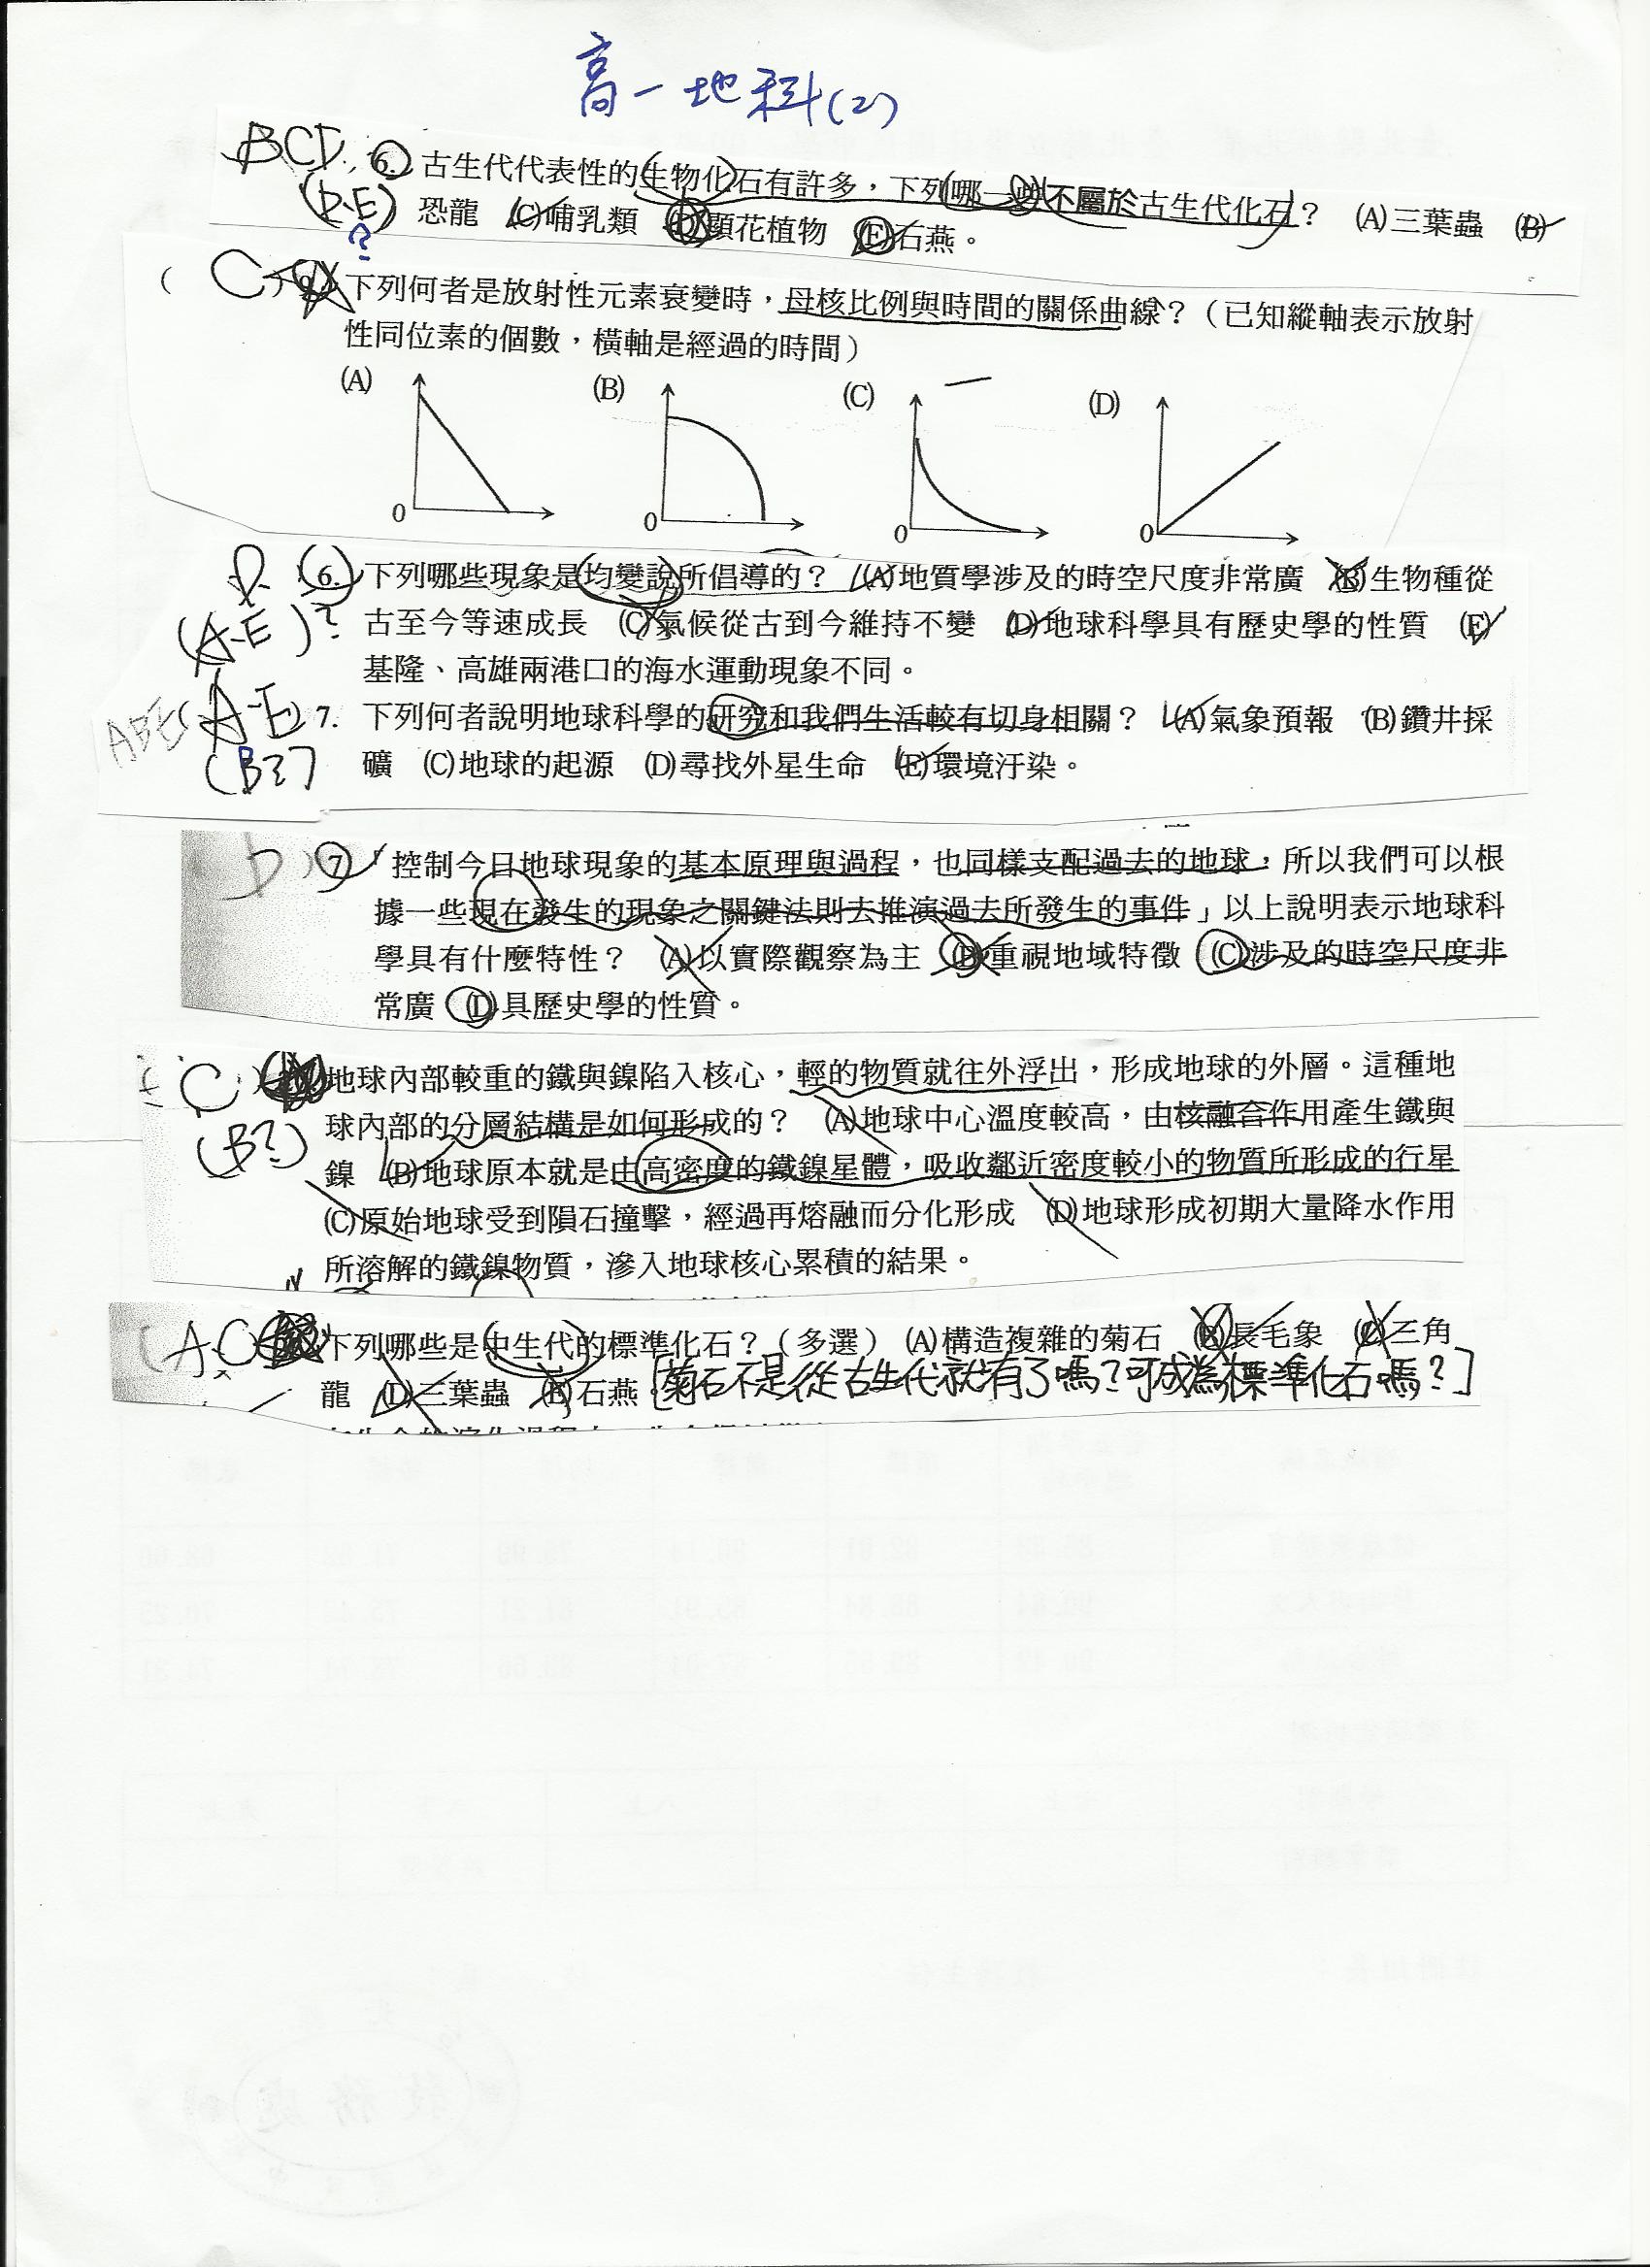 高一地科(2)
BCD 6. 古生代代表性的生物化石有許多，下列哪一些不屬於古生代化石？ (A)三葉蟲 (B)
(D.E) 恐龍 (C)哺乳類 (D)顯花植物 (E)石燕。
?
( C ) 下列何者是放射性元素衰變時，母核比例與時間的關係曲線？（已知縱軸表示放射
性同位素的個數，橫軸是經過的時間）
(A) (B) (C) (D)
0 0 0 0
D 6. 下列哪些現象是均變說所倡導的？ (A)地質學涉及的時空尺度非常廣 (B)生物種從
(A.E)? 古至今等速成長 (C)氣候從古到今維持不變 (D)地球科學具有歷史學的性質 (E)
基隆、高雄兩港口的海水運動現象不同。
ABE A.E 7. 下列何者說明地球科學的研究和我們生活較有切身相關？ (A)氣象預報 (B)鑽井採
(B?) 礦 (C)地球的起源 (D)尋找外星生命 (E)環境汙染。
D ) 7 「控制今日地球現象的基本原理與過程，也同樣支配過去的地球，所以我們可以根
據一些現在發生的現象之關鍵法則去推演過去所發生的事件」以上說明表示地球科
學具有什麼特性？ (A)以實際觀察為主 (B)重視地域特徵 (C)涉及的時空尺度非
常廣 (D)具歷史學的性質。
( C ) 地球內部較重的鐵與鎳陷入核心，輕的物質就往外浮出，形成地球的外層。這種地
(B?) 球內部的分層結構是如何形成的？ (A)地球中心溫度較高，由核融合作用產生鐵與
鎳 (B)地球原本就是由高密度的鐵鎳星體，吸收鄰近密度較小的物質所形成的行星
(C)原始地球受到隕石撞擊，經過再熔融而分化形成 (D)地球形成初期大量降水作用
所溶解的鐵鎳物質，滲入地球核心累積的結果。
(A.C) 下列哪些是中生代的標準化石？（多選） (A)構造複雜的菊石 (B)長毛象 (C)三角
龍 (D)三葉蟲 (E)石燕。[菊石不是從古生代就有了嗎？可成為標準化石嗎？]